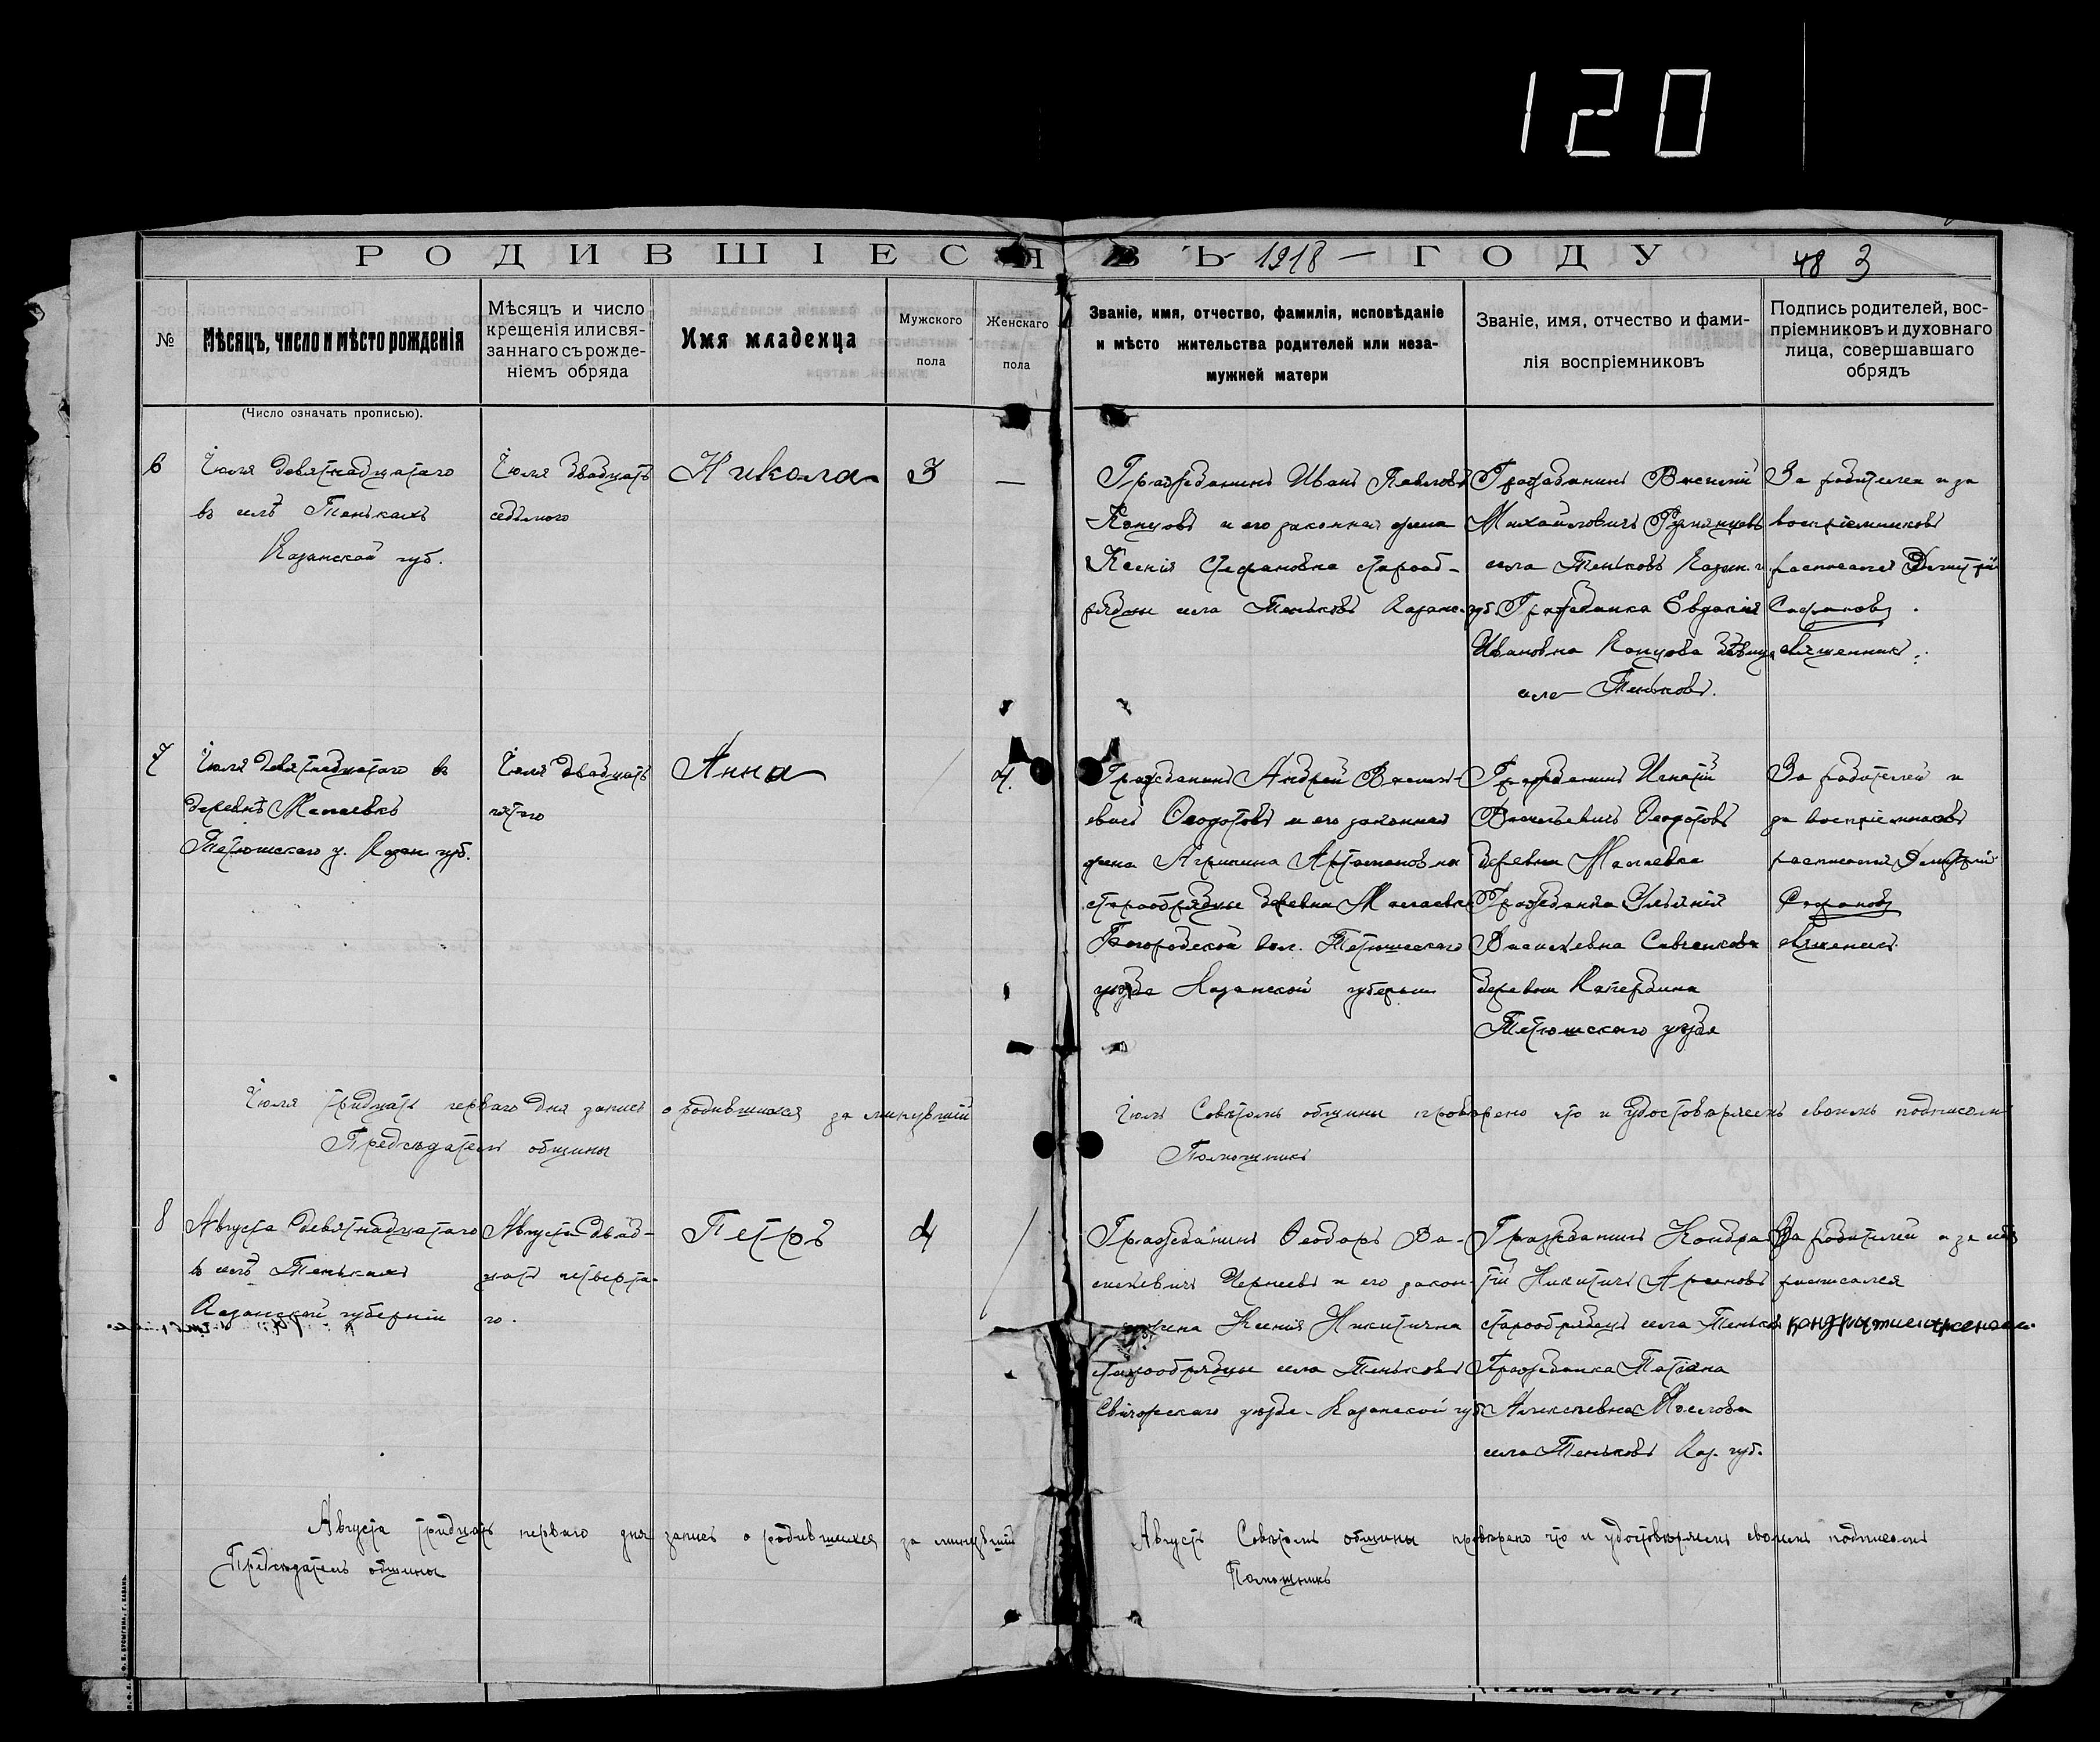 120
РОДИВШІЕСЯ ВЪ 1918 ГОДУ
48 3
№
Мѣсяцъ, число и мѣсто рожденія
Мѣсяцъ и число
крещенія или свя-
заннаго съ рожде-
ніемъ обряда
Имя младенца
Мужского
пола
Женскаго
пола
Званіе, имя, отчество, фамилія, исповѣданіе
и мѣсто жительства родителей или неза-
мужней матери
Званіе, имя, отчество и фами-
лія воспріемниковъ
Подпись родителей, вос-
пріемниковъ и духовнаго
лица, совершавшаго
обрядъ
(Число означать прописью).
6
Іюля девятнадцатаго
въ селѣ Тенькахъ
Казанской губ.
Іюля двадцать
седьмого
Никола
3
—
Гражданинъ Иванъ Павловъ
Концовъ и его законная жена
Ксенія Стефановна старооб-
рядцы села Теньковъ Казанс. губ.
Гражданинъ Василій
Михайловичъ Румянцевъ
села Теньковъ Казан. г.
Гражданка Евдокія
Ивановна Концова дѣвица
села Теньковъ.
За родителей и за
воспріемниковъ
расписался Димитрій
Сафоновъ
священникъ
7
Іюля девятнадцатаго въ
деревнѣ
Тетюшскаго у. Казан. губ.
Іюля двадцать
пятаго
Анна
4.
Гражданинъ Андрей Василь-
евичъ Ѳеодотовъ и его законная
жена Агрипина Артамоновна
старообрядцы деревни
Богородской вол. Тетюшскаго
уѣзда Казанской губерніи
Гражданинъ Игнатій
Васильевичъ Ѳеодотовъ
деревни
Гражданка Ульянія
Васильевна
деревни
Тетюшскаго уѣзда
За родителей и
за воспріемниковъ
расписался Димитрій
Сафоновъ
священникъ.
Іюля тридцать перваго дня запись о родившихся за минувшій Іюль Совѣтомъ общины проверено что и удостовѣряемъ своимъ подписомъ
Предсѣдатель общины
Помощникъ
8
Августа девятнадцатаго
въ селѣ Тенькахъ
Казанской губерніи
Августа двад-
цать четверта-
го.
Петръ
4
Гражданинъ Ѳеодоръ Ва-
сильевичъ и его закон.
жена Ксенія Никитична
старообрядцы села Теньковъ
Свіяжскаго уѣзда Казанской губ.
Гражданинъ Кондра-
тій Никитичъ
старообрядецъ села Теньковъ
Гражданка Татіана
Алексѣевна Маслова
села Теньковъ Каз. губ.
За родителей и за себя
расписался
Августа тридцать перваго дня запись о родившихся за минувшій Августъ Совѣтомъ общины проверено что и удостовѣряемъ своимъ подписомъ
Предсѣдатель общины
Помощникъ